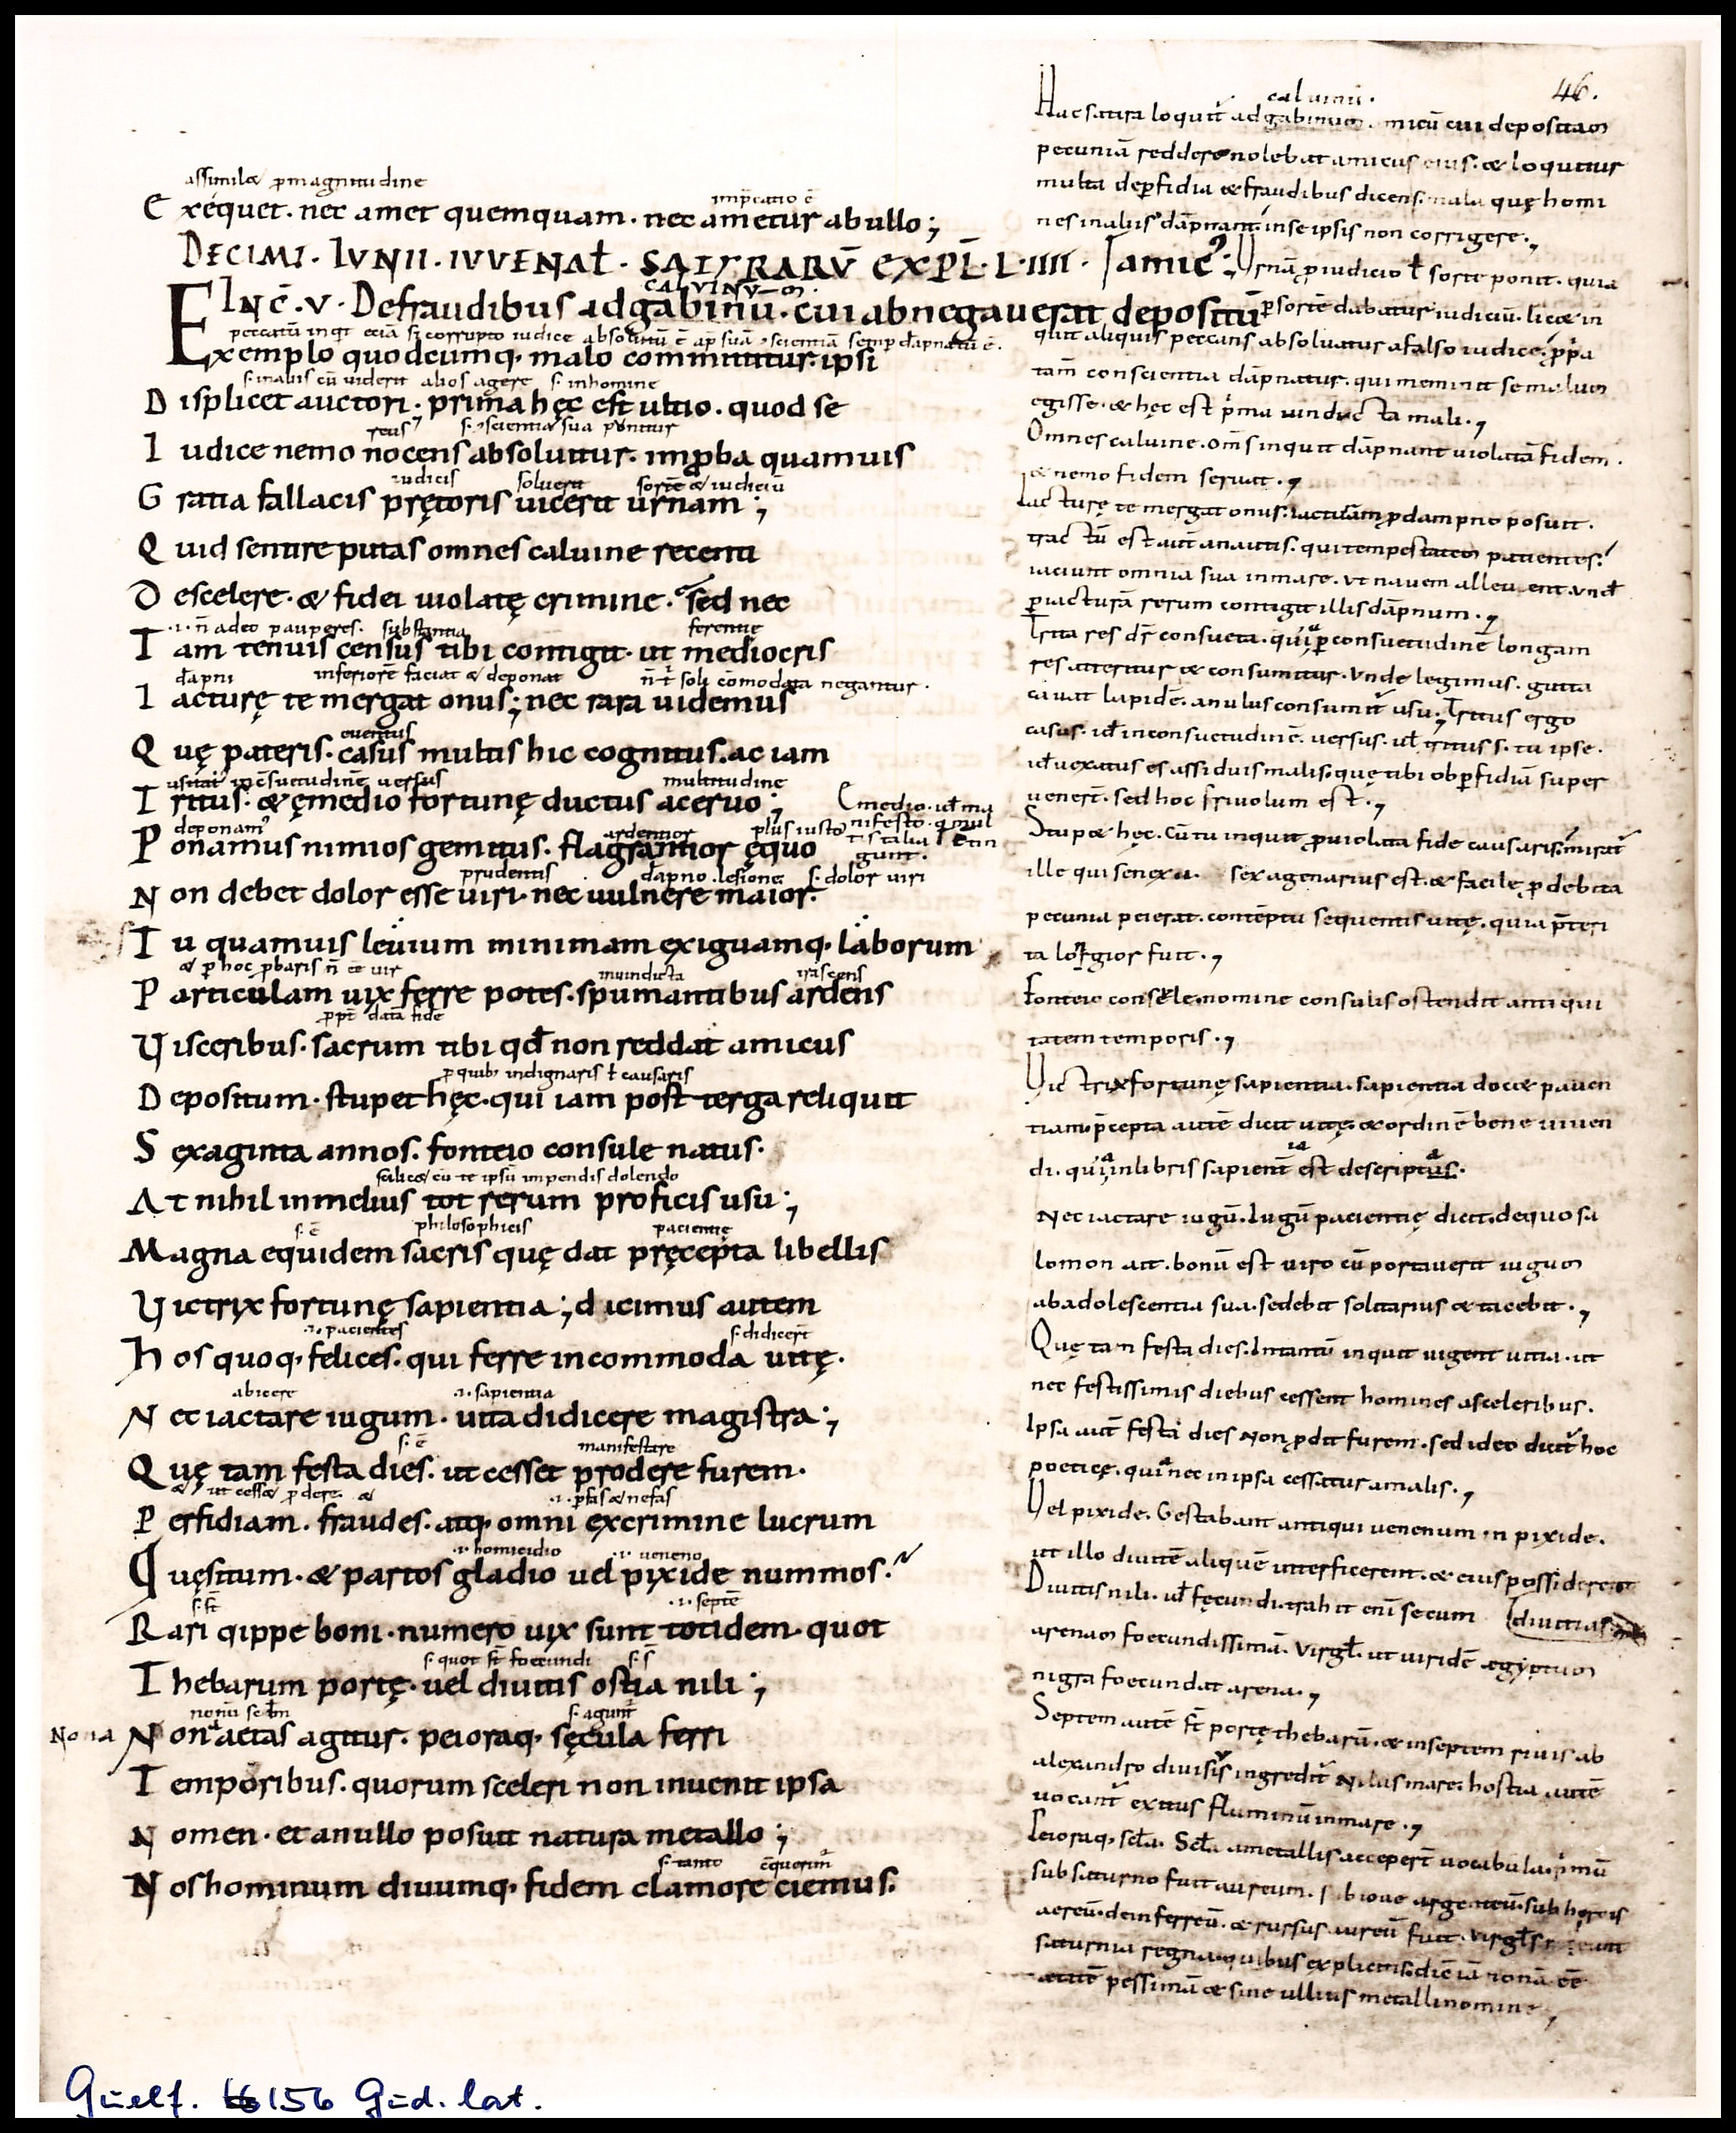 46.
assimilæ p magnitudine
imp̄catio ē
Exéquet. nec amet quemquam. nec ametur ab ullo;
DECIMI. IVNII. IVVENAŁ. SATYRARV̄ EXPL̄. L. IIII.
CALVINV̄
INC̄. V. De fraudibus ad gabinū. cui abnegauerat depositū
Exemplo quodcumq. malo committitur. ipsi
s. in aliis cū uiderit alios agere s. in homine
Displicet auctori. prima hęc est ultio. quod se
reus s. ɔscientia sua punitur
Iudice nemo nocens absoluitur. improba quamuis
iudicis soluerit sortē & iudiciū
Gratia fallacis prętoris uicerit urnam;
Quid sentire putas omnes caluine recenti
De scelere. & fidei uiolatę crimine. sed nec
.i. n̄ adeo pauperes. substantia ferentię
Tam tenuis census tibi contigit. ut mediocris
dāpni inferiorē faciat & deponat
Iacturę te mergat onus; nec rara uidemus
euentus
Quę pateris. casus multis hic cognitus. ac iam
multitudine
Tritus. & ę medio fortunę ductus aceruo;
deponam' ardentior plus iusto
Ponamus nimios gemitus. flagrantior ęquo
prudentis dāpno. lesione. s. dolor uiri
Non debet dolor esse uiri. nec uulnere maior.
Tu quamuis leuium minimam exiguamq. laborum
& p hoc pbaris n̄ ēē uir
Particulam uix ferre potes. spumantibus ardens
ppt̄ datā fidē
Visceribus. sacrum tibi qđ non reddat amicus
p quib indignaris ł causaris
Depositum. stupet hęc. qui iam post terga reliquit
Sexaginta annos. fonteio consule natus.
At nihil in melius tot rerum proficis usu;
s. ē philosophicis pacientię
Magna equidem sacris quę dat pręcepta libellis
Victrix fortunę sapientia; dicimus autem
.i. pacientes s. didicerт̄
Hos quoq. felices. qui ferre incommoda uitę.
abicere .i. sapientia
Nec iactare iugum. uita didicere magistra;
s. ē manifestare
Quę tam festa dies. ut cesset prodere furem.
.i. p fas & nefas
Perfidiam. fraudes. atq. omni ex crimine lucrum
.i. homicidio .i. ueneno
Quęsitum. & partos gladio uel pixide nummos.
.i. septē
Rari qippe boni. numero uix sunt totidem. quot
s. quot st̄ foecundi
Thebarum portę. uel diuitis ostia nili;
s. agunt̄
Nona
Nona aetas agitur. peioraq. sęcula ferri
Temporibus. quorum sceleri non inuenit ipsa
Nomen. et a nullo posuit natura metallo;
s. tanto
Nos hominum diuumq. fidem clamore ciemus.
caluinū.
Haec satira loquit̄ ad gabinum. amicū cui depositam
pecuniā reddere nolebat amicus eius. & loquitur
multa de pfidia & fraudibus dicens. mala quę homi
nes in aliis dāpnant. in se ipsis non corrigere.
Vrnā p iudicio ł sorte ponit. quia
p sortē dabatur iudiciū. lic& in
quit aliquis peccans absoluatur a falso iudice. ppa
tam̄ conscientia dāpnatur. qui meminit se malum
egisse. & hęc est pma uindicta mali.
Omnes caluine. om̄s inquit dāpnant uiolatā fidem.
& nemo fidem seruat.
Iacturę te mergat onus. iacturam p dampno posuit.
tractū est aut̄ a nautis. qui tempestatem patientes.
iaciunt omnia sua in mare. ut nauem alleuient. unđ
p iacturā rerum contigit illis dāpnum.
Trita res dr̄ consueta. quia p consuetudinē longam
res atteritur & consumitur. Vnde legimus. gutta
cauat lapidē. anulus consumit̄ usu. Tritus ergo
casus. id in consuetudinē uersus. uł tritus s. tu ipse.
uł uexatus es assiduis malis. quę tibi ob pfidiā super
uenert̄. sed hoc friuolum est.
Stup& hęc. Cū tu inquit p uiolata fide causaris. mirat̄
ille qui senex sexagenarius est. & facile p debita
pecunia peierat. contēptu sequentis uitę. quia p̄teri
ta longior fuit.
Fonteio consule. nomine consulis ostendit antiqui
tatem temporis.
Victrix fortunę sapientia. sapientia doc& pacien
tiam. p̄cepta autē dicit uitę. & ordinē bene uiuen
di. quia in libris sapientia est descripta.
Nec iactare iugū. Iugū pacientię dicit. de quo sa
lomon ait. bonū est uiro cū portauerit iugum
ab adolescentia sua. sedebit solitarius & tacebit.
Quę tam festa dies. In tantū inquit uigent uitia. ut
nec festissimis diebus cessent homines a sceleribus.
Ipsa aut̄ festa dies non pdit furem. sed ideo dicit̄ hoc
poeticę. quia nec in ipsa cessatur a malis.
Vel pixide. Gestabant antiqui uenenum in pixide.
ut illo diuitē aliquē interficerent. & eius possiderent
diuitias.
Diuitis nili. uł fęcundi. trahit eni secum
arenam foecundissimā. Virgł. ut uiridē egyptum
nigra foecundat arena.
Septem autē st̄ portę thebarū. & in septem riuis ab
alexandro diuisis ingredit̄ nilus mare. hostia autē
uocant̄ exitus fluminū in mare.
Peioraq. scła. Scła a metallis accepert̄ uocabula. pmū
sub saturno fuit aureum. sub ioue argenteū. sub herois
aereū. dein ferreū. & rursus aureū fuit. Virgł
saturnia regna. quibus expliciis. dic̄ iā nonā ēē
ętatē pessimā & sine ullius metalli nomine,
(medio. uł ma
nifesto. q. mul
tis talia ɔtin
gunt.
Guelf. 156 Gud. lat.